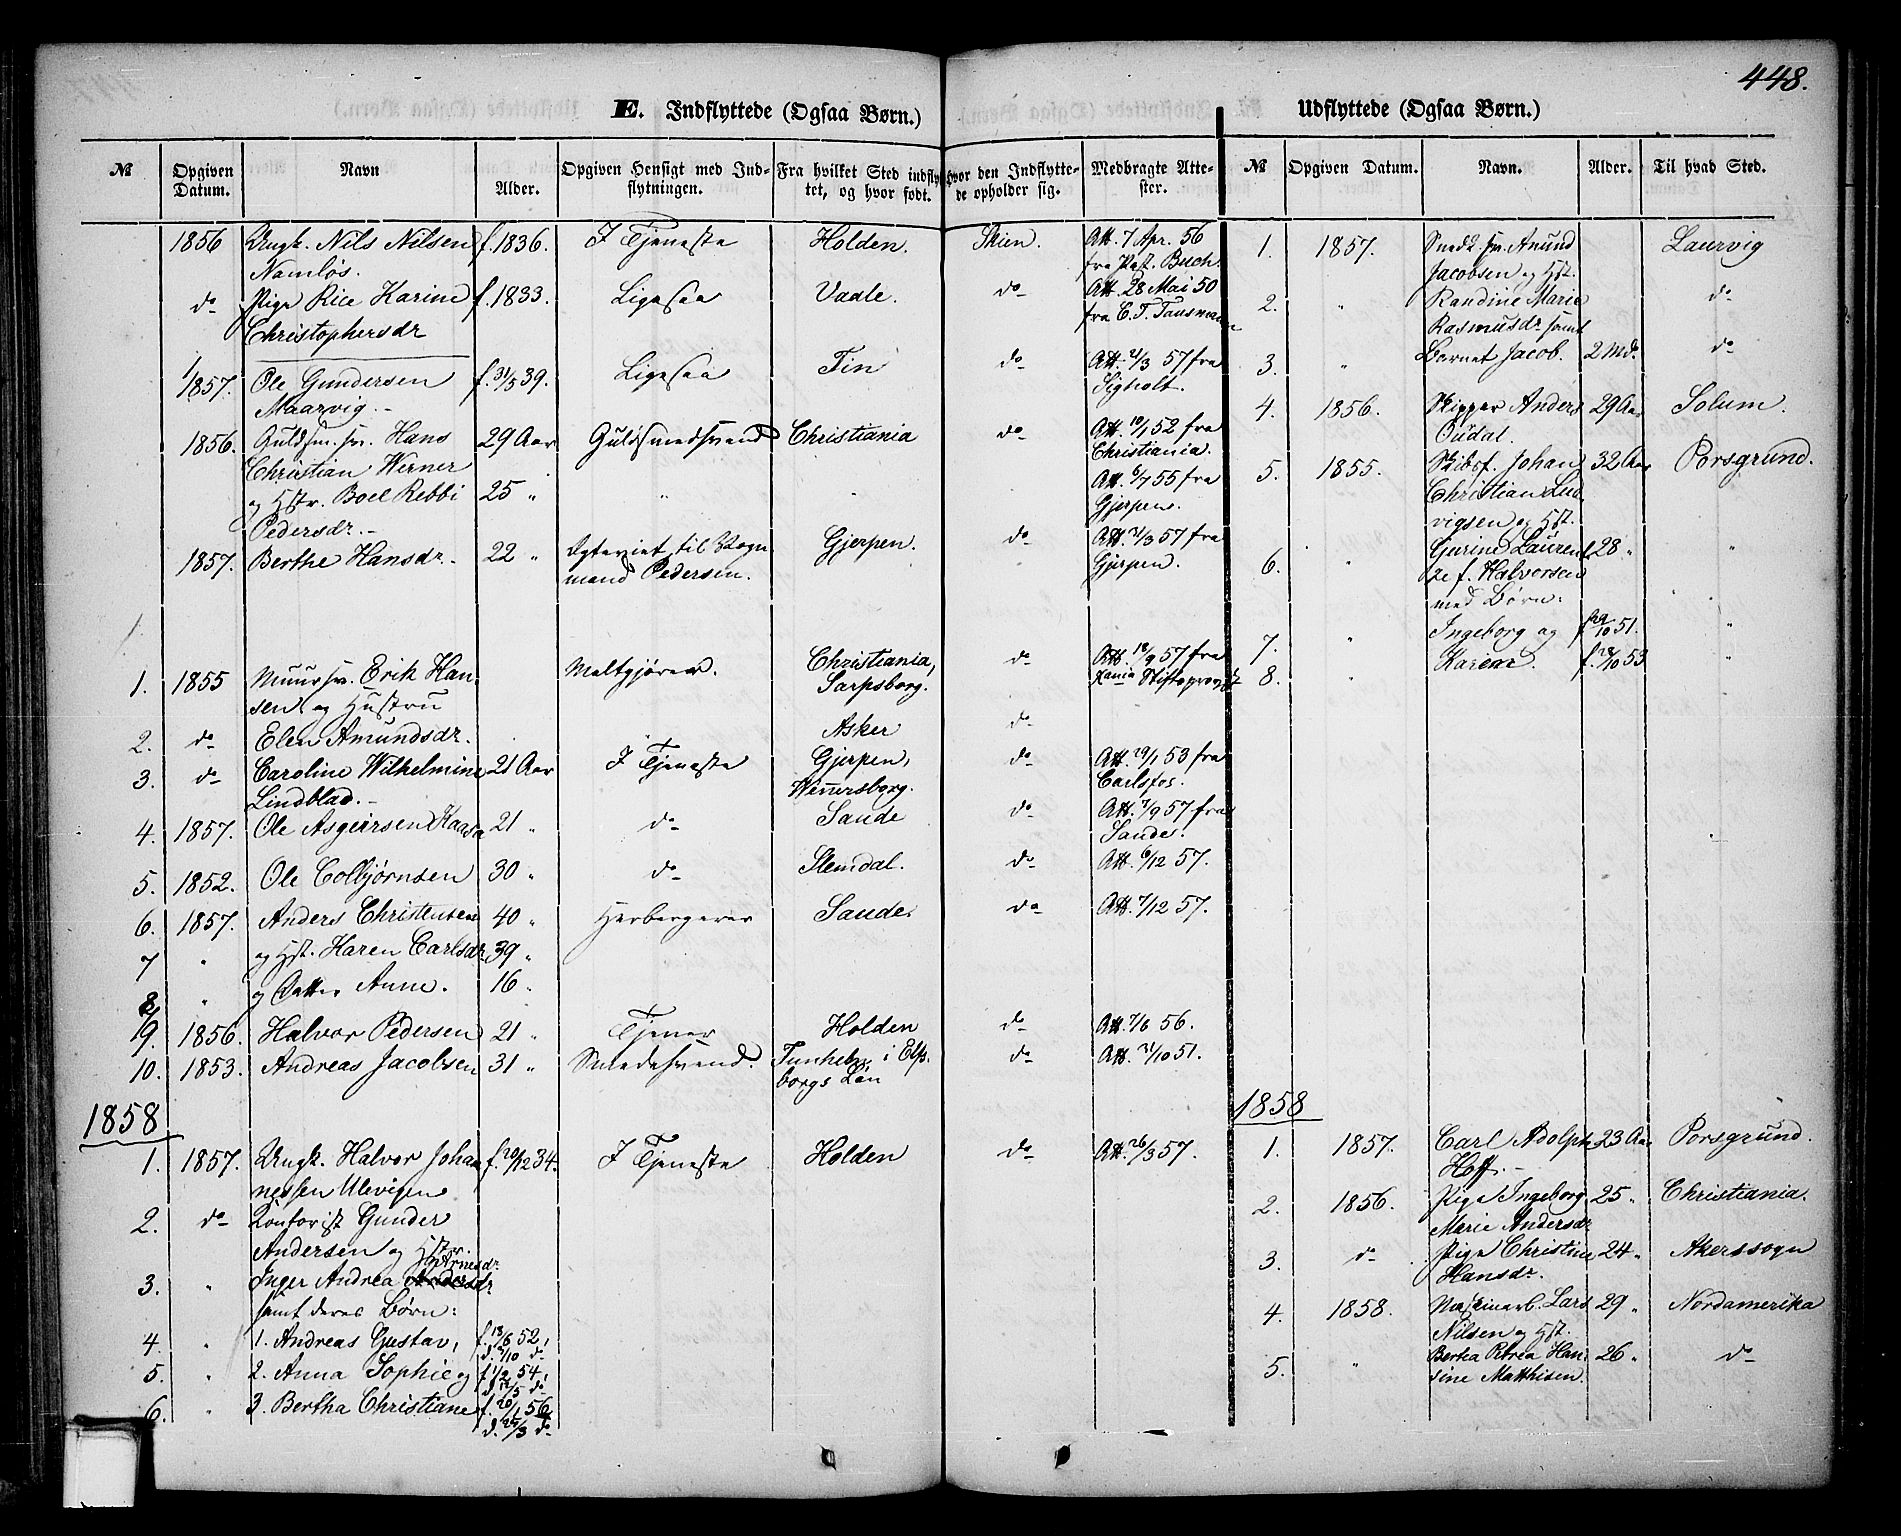 448.
E. Indflyttede (Ogsaa Børn.)
№ Opgiven Datum. Navn Alder. Opgiven Hensigt med Indflytningen. Fra hvilket Sted indflyttet, og hvor født. Hvor den Indflyttede opholder sig. Medbragte Attester.
1856 Ungk. Nils Nilsen f. 1836. I Tjeneste Holden. Skien. Att. 7 Apr. 56
Namløs. fra Past. Buch.
do Pige Kari Karine f. 1833. Ligesaa Vaale. do Att. 28 Mai 50
Christophersdr
1857. Ole Gundersen f. 31/5 39. Ligesaa Tin do Att. 21/3 57 fra
Maarvig.
1856. Guldsm.sv. Hans 29 Aar Guldsmedsvend Christiania do Att. 10/1 52 fra
Christian Werner Christiania.
og Hstr. Boel Rebbi 25 " " " Att. 6/7 55 fra
Pedersdr. Gjerpen.
1857. Berthe Hansdr. 22 " Ægteviet til Vogn- Gjerpen. do Att. 21/3 57 fra
mand Pedersen. Gjerpen.
1. 1855 Muursv. Erik Han- Maltgjører. Christiania, do Att. 18/9 57 fra
sen, og Hustru Sarpsborg. Xania Stiftsprovst
2. do Elen Amundsdr. Asker do
3. do Caroline Wilhelmine 21 Aar I Tjeneste Gjerpen, do Att. 29/1 53 fra
Lindblad. Wennersborg. Carlsfos.
4. 1857. Ole Asgeirsen Haasa 21 " do Saude do Att. 7/9 57 fra
Saude.
5. 1852. Ole Colbjørnsen 30 " do Slemdal. do Att. 6/12 57.
6. 1857. Anders Christensen 40 " Herbergerer Saude. do Att. 7/12 57.
7 " og Hst. Karen Carlsdr. 39 "
8 " og Datter Anne. 16 "
9. 1856. Halvor Pedersen 21 " Tjener Holden do Att. 7/6 56.
10. 1853. Andreas Jacobsen 31 " Smedesvend. Tunhelm i Elfs- do Att. 21/10 51.
borgs Län
1858
1. 1857. Ungk. Halvor Johan- f. 20/12 34. I Tjeneste Holden do Att. 26/3 57.
nessen Ulevigen
2. do Konforist Gunder
Andersen og Hstr.
Arnesdr
3. " Inger Andrea Andersdr
samt deres Børn:
4 " 1. Andreas Gustav, f. 18/6 52,
d. 2/10 do
5. " 2. Anna Sophie og f. 1/2 54,
d. 12/5 do
6. " 3. Bertha Christiane f. 20/1 56,
d. 25/3 do
Udflyttede (Ogsaa Børn.)
№ Opgiven Datum. Navn. Alder. Til hvad Sted.
1. 1857. Snedk.sv. Amund Laurvig
Jacobsen og Hst.
2. " Randine Marie do
Rasmusdr samt
3. " Barnet Jacob. 2 Md. do
4. 1856. Skipper Anders 29 Aar Solum.
Oudal.
5. 1855. Skibsf. Johan 32 Aar Porsgrund.
Christian Lud-
vigsen og Hst.
6. " Gurine Laurent- 28 " "
ze f. Halvorsen
med Børn:
7. " Ingeborg og f. 29/10 51. "
8. " Karine. f. 28/10 53 "
1858
1. 1857. Carl Adolph 23 Aar Porsgrund.
Hoff.
2. 1856. Pige Ingeborg 25 " Christiania.
Marie Andersdr
3. do Pige Christine 24 " Akerssogn
Hansdr.
4. 1858. Maskinarb. Lars 29 " Nordamerika
Nilsen og Hst.
5. " Bertha Petrea Han- 26 " do
sine Matthisen.